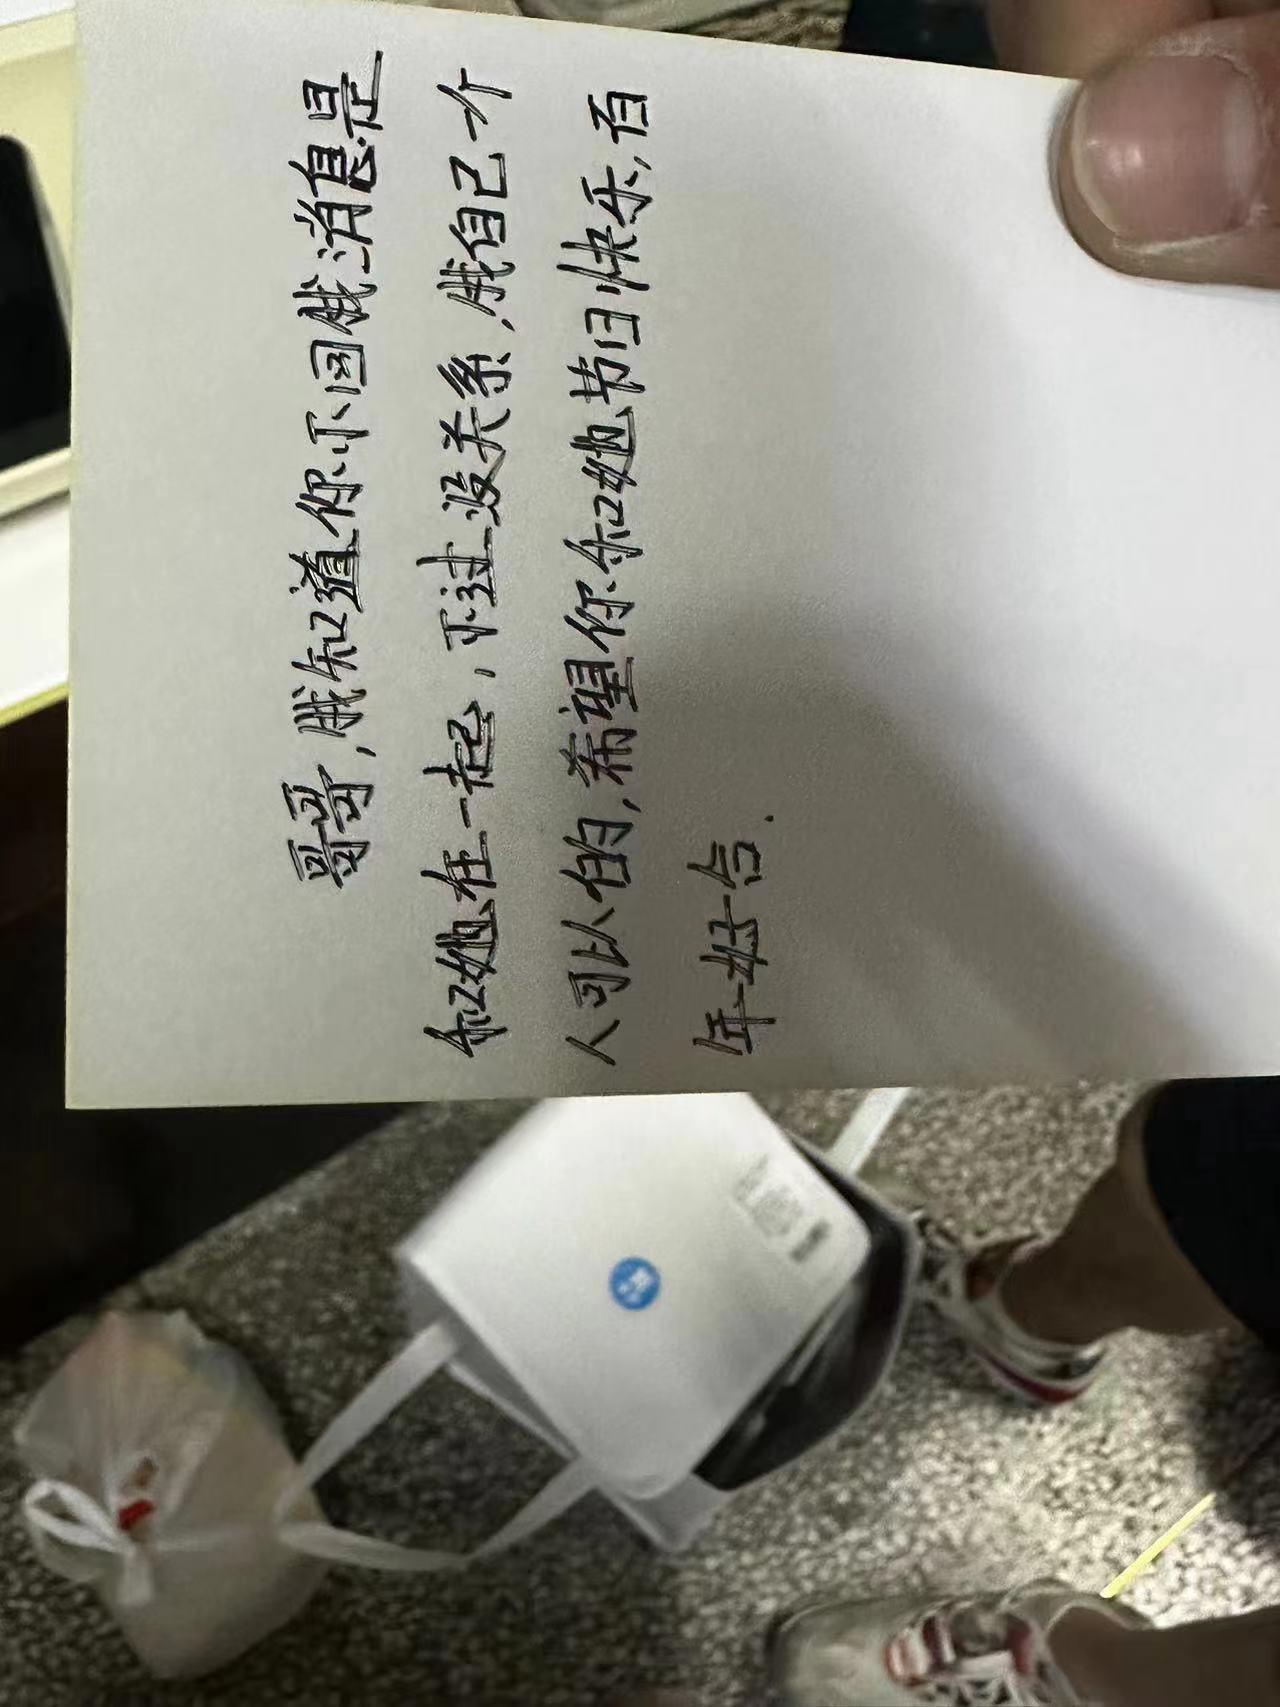 哥哥,我知道你不回我消息是
和她在一起,不过没关系,我自己一个
人可以的,希望你和她节日快乐,百
年好合.